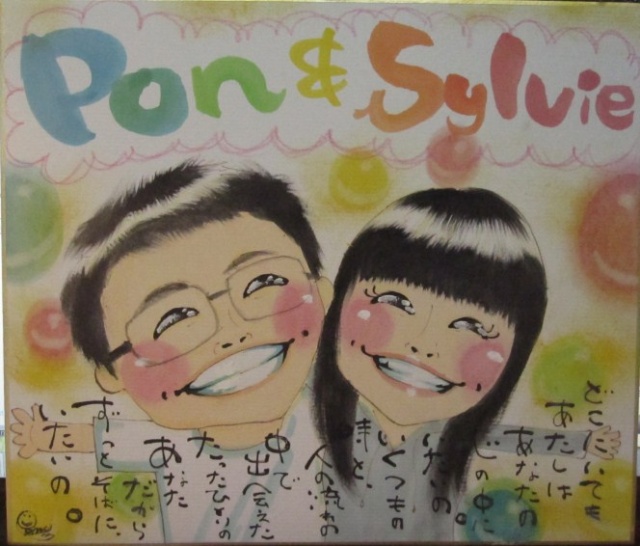 Pon & Sylvie
どこにいても
あたしは
あなたの
心の中に
いたいの。
いくつもの
時と、
人の流れの
中で
出会えた
たったひとりの
あなた
だから
ずっとそばに、
いたいの。